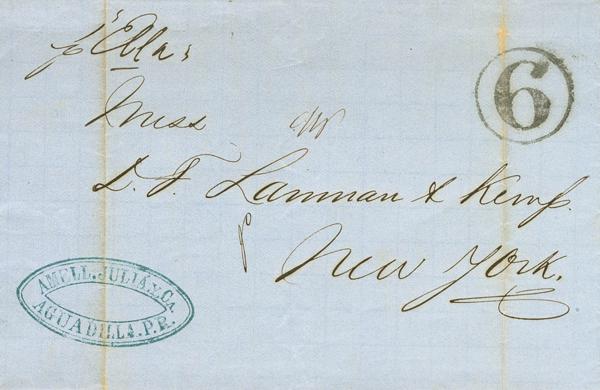 p "Ella"
Mess
D. T. Lanman & Kemp.
New York.
6
AMELL, JULIA Y CA.
AGUADILLA, P.R.